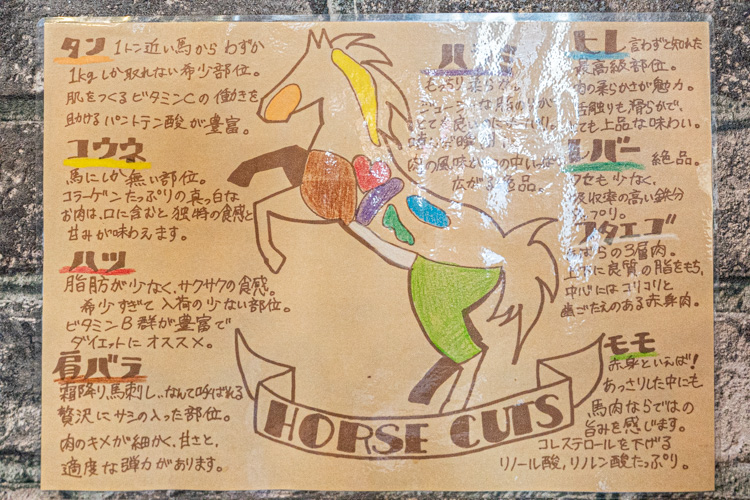 タン 1トン近い馬からわずか
1kgしか取れない希少部位。
肌をつくるビタミンCの働きを
助けるパントテン酸が豊富。
コウネ
馬にしか無い部位。
コラーゲンたっぷりの真っ白な
お肉は、口に含むと独特の食感と
甘みが味わえます。
ハツ
脂肪が少なく、サクサクの食感。
希少すぎて入荷の少ない部位。
ビタミンB群が豊富で
ダイエットにオススメ。
肩バラ
霜降り馬刺し…なんて呼ばれる
贅沢にサシの入った部位。
肉のキメが細かく、甘さと、
適度な弾力があります。
ハラミ
肉の風味と
広がる絶品。
ヒレ 言わずと知れた
最高級部位。
柔らかさが魅力。
舌触りも滑らかで、
とても上品な味わい。
レバー 絶品。
クセも少なく、
吸収率の高い鉄分
たっぷり。
フタエゴ
ばらの3層肉。
上下に良質の脂をもち、
中心にはコリコリと
歯ごたえのある赤身肉。
モモ
赤身といえば!
あっさりした中にも
馬肉ならではの
旨みを感じます。
コレステロールを下げる
リノール酸,リノレン酸たっぷり。
HORSE CUTS